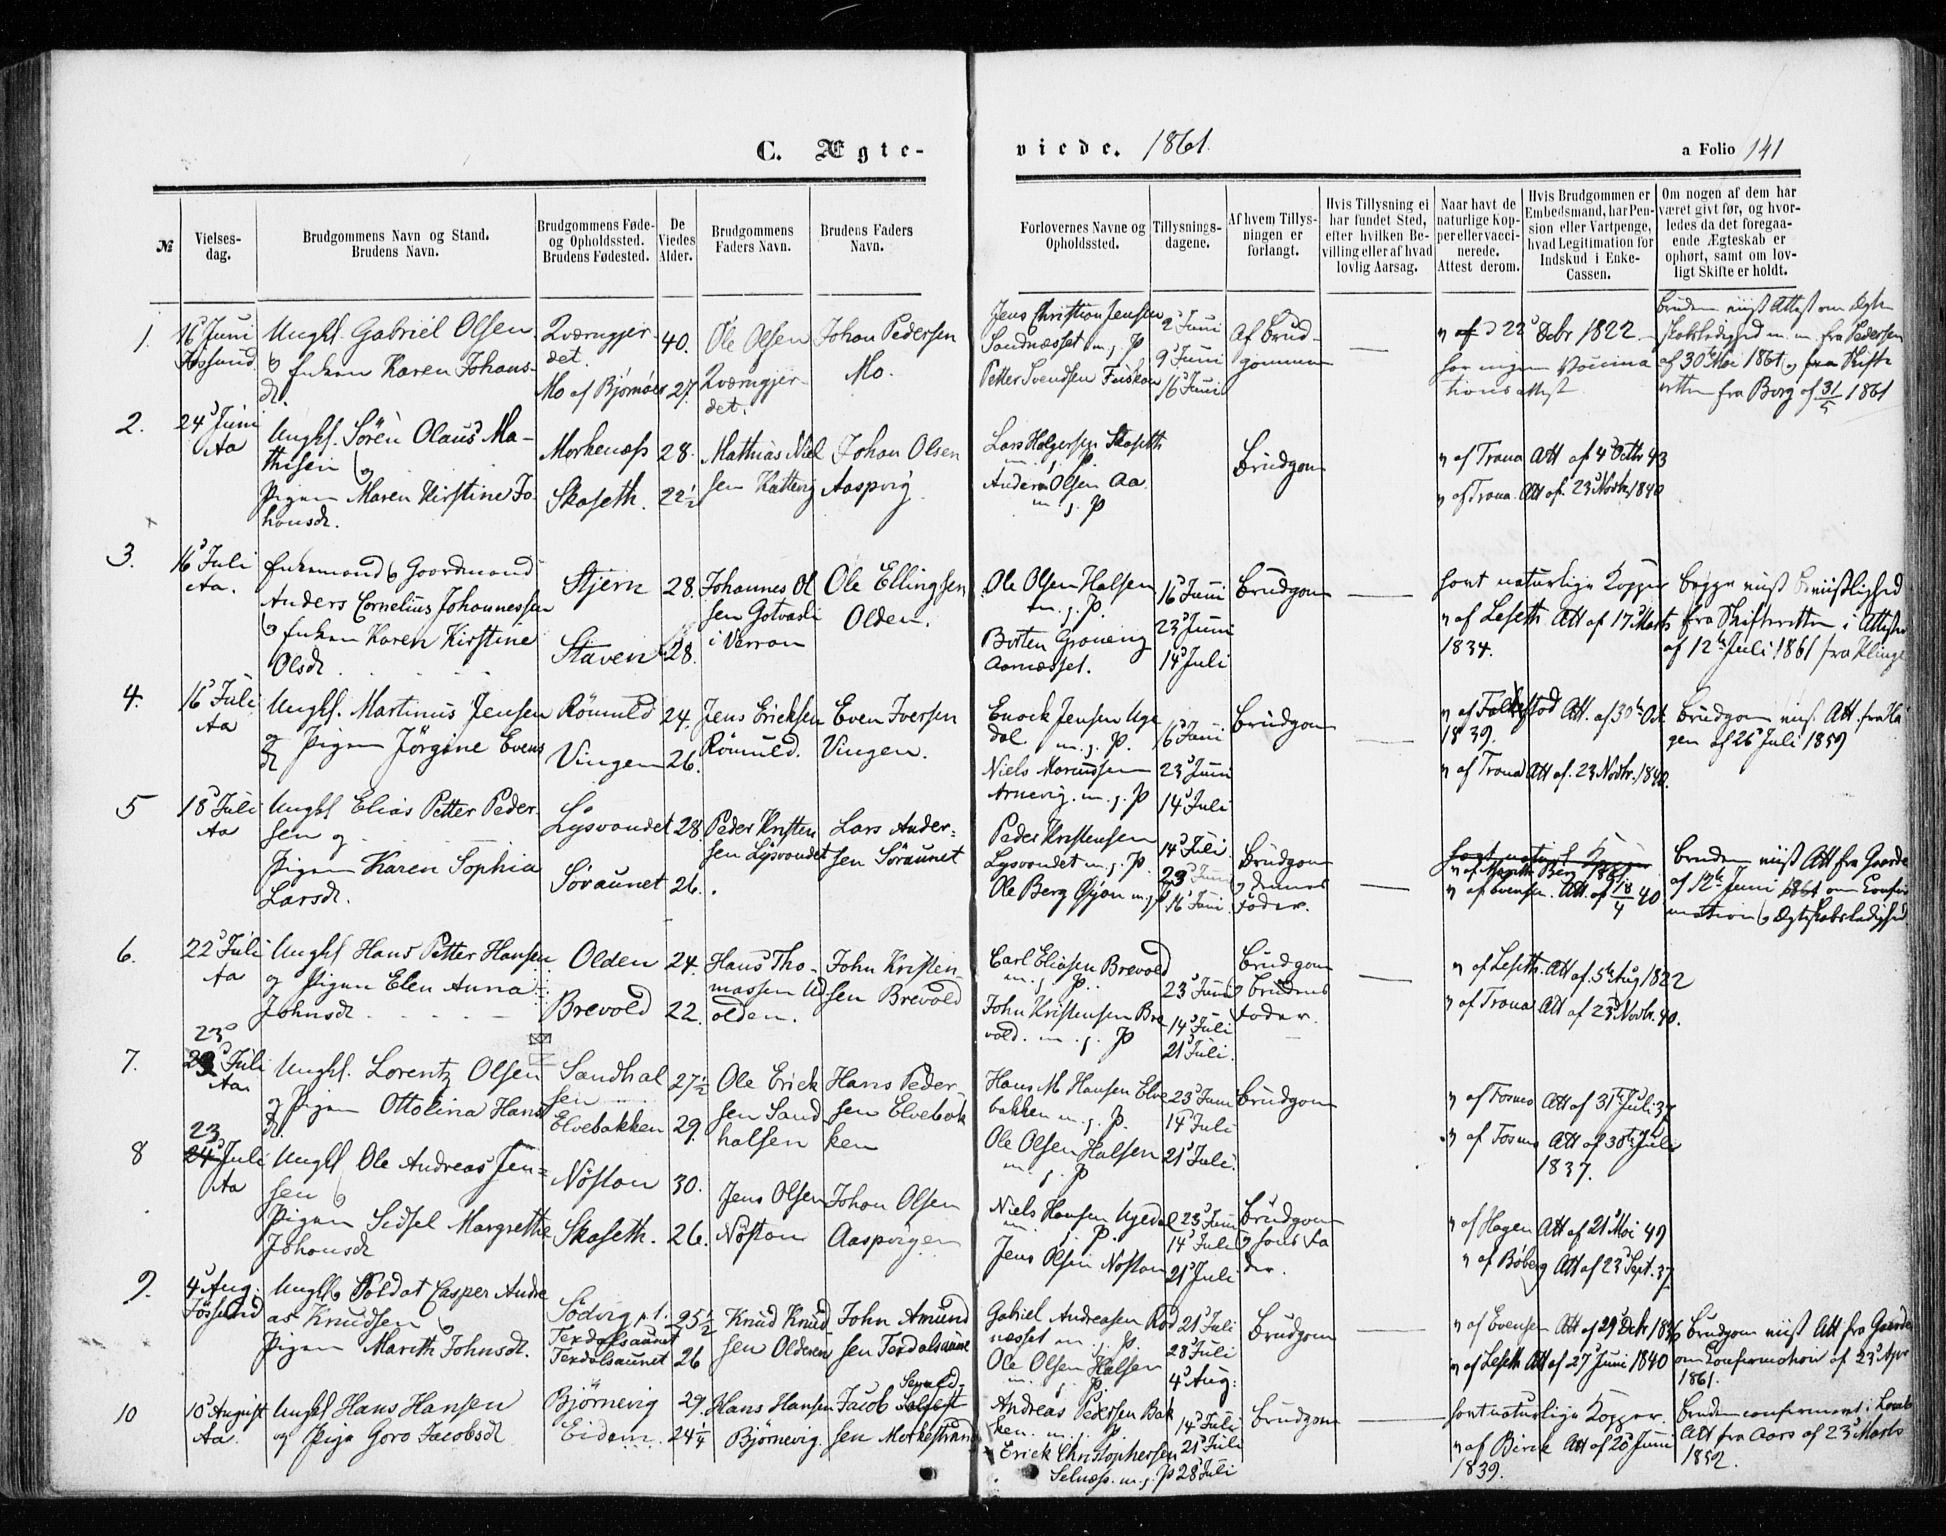 C. Ægte-
viede. 1861.
a Folio 141
№
Vielses-
dag.
Brudgommens Navn og Stand.
Brudens Navn.
Brudgommens Føde-
og Opholdssted.
Brudens Fødested.
De
Viedes
Alder.
Brudgommens
Faders Navn.
Brudens Faders
Navn.
Forlovernes Navne og
Opholdssted.
Tillysnings-
dagene.
Af hvem Tillys-
ningen er
forlangt.
Hvis Tillysning ei
har fundet Sted,
efter hvilken Be-
villing eller af hvad
lovlig Aarsag.
Naar havt de
naturlige Kop-
per eller vacci-
nerede.
Attest derom.
Hvis Brudgommen er
Embedsmand, har Pen-
sion eller Vartpenge,
hvad Legitimation for
Indskud i Enke-
Cassen.
Om nogen af dem har
været givt før, og hvor-
ledes da det foregaa-
ende Ægteskab er
ophørt, samt om lov-
ligt Skifte er holdt.
1.
16 Juni
Jøssund
Ungkl. Gabriel Olsen
og Enken Karen Johans-
dr.
Qværngjer-
det.
Mo af Bjørnøer
40.
27.
Ole Olsen
Qværngjer-
det.
Johan Pedersen
Mo.
Jens Christian Jensen
Sandnæsset m. j. P
Petter Svendsen
2 Juni
9 Juni
16 Juni
Af Brud-
gommen
22 Decbr 1822
har ingen Vaccina
tionsattest
Bruden viist Attest om Ægte
skabsledighed m. m. fra Pedersen
af 30 Mai 1861 og fra Skifte
retten fra Borg af 31/5 1861
2.
24 Juni
Aa
Ungkl. Sören Olaus Ma-
thisen og
Pigen Maren Kirstine Jo-
hansdr.
Morkenæss
Skaseth.
28.
22½
Mathias Niel
sen Hattevig
Johan Olsen
Aaspvig
Lars Holgersen Skaseth
m. j. P.
Anders Olsen Aa.
m. j. P
Brudgom
v af Trana Att af 4 Octbr 43
v af Trana. Att af. 23 Novbr. 1840
3.
16 Juli
Aa.
Enkemand og Gaardmand
Anders Cornelius Johannessen
og Enken Karen Kirstine
Olsdr.
Stjern
Staven
28.
28.
Johannes Ol
sen Gotvasli
i Verran
Ole Ellingsen
Olden.
Ole Olsen Halsen
m. j. P.
Borten Grøning
Aarnæsset.
16 Juni
23 Juni
14 Juli
Brudgom
havt naturlige Kopper
v af Leseth Att af 17 Marts
1834.
Begge viist Beviislighed
fra Skifteretten i Attester
af 12 Juli 1861 fra Klinge
4.
16 Juli
Aa
Ungkl. Martinus Jensen
og Pigen Jörgine Evens
dr
Römuld
Vingen
24.
26.
Jens Ericksen
Römuld.
Even Iversen
Vingen.
Enock Jensen Uge
dal m. j. P.
Niels Monudsen
Arnevig. m. j. P
16 Juni
23 Juni
14 Juli
Brudgom
v af Falkstad Att. af 30 Oct
1839.
v af Trana Att af. 23 Novbr. 1840.
Brudgom viist Att. fra Ha
gen af 26 Juli 1859
5
18 Juli
Aa
Ungkl Elias Petter Peder-
sen og
Pigen Karen Sophia
Larsdr.
Lysvandet
Söraunet
28
26.
Peder Kristen
sen Lysvandet
Lars Ander-
sen Söraunet
Peder Kristensen
Lysvandet m. j. P.
Ole Berg Gjøn m. j. P
14 Juli
23 Juni
16 Juni
Brudgom
Fader.
havt naturl. Kopper
v af Evensen. Att. af 18/4 40
Bruden viist Att fra Gaarde
af 12 Juni 1861 om Confir
mation og Ægteskabsledighed.
6.
22 Juli
Aa
Ungkl Hans Petter Hansen
og Pigen Elen Anna
Johnsdr
Olden
Brevold
24.
22.
Hans Tho-
massen Ud
olden.
John Kristen-
sen Brevold
Carl Eliasen Brevold
m. j. P.
John Kristensen Bre
vold. m. j. P
23 Juni
14 Juli
21 Juli.
Brudgom
og Brudens
Fader.
v af Leseth. Att af 5 Aug 1822
v af Trana Att af 23 Novbr. 40.
7.
23
23 Juli
Aa
Ungkl. Lorentz Olsen
og Pigen Ottolina Hans
dr.
Sandhal
sen
Elvebakken
27½
29.
Ole Erick
sen Sand
halsen
Hans Peder
sen Elvebak
ken
Hans M Hansen Elve
bakken m. j. P.
Ole Olsen Halsen
m. j. P
23 Juni
14 Juli
21 Juli.
Brudgom
v af Fosnes Att af 31 Juli 37
v af Fosnes Att af 30 Juli
1837.
8
23
24 Juli
Aa
Ungkl. Ole Andreas Jen-
sen og
Pigen Sidsel Margrethe
Johansdr
Nöstan
Skaseth.
30.
26.
Jens Olsen
Nöstan
Johan Olsen
Aaspvigen
Niels Hansen Ugedal
m. j. P.
Jens Olsen Nöstan
23 Juni
14 Juli
21 Juli
Brudgom
og hans Fa
der.
v af Hagen Att af 21 Mai 49
v af Böberg Att af 23 Sept. 37
9.
4 Aug.
Jössund
Ungkl og Soldat Casper Andre
as Knudsen og
Pigen Marith Johnsdr.
Södvig p. t.
Terdalsaunet
Terdalsaunet
25½
26
Knud Knud
sen Olderen
John Amund
sen Terdalsaune
Gabriel Andreasen Rød
næsset m. j. P.
Ole Olsen Halsen
m. j. P.
21 Juli
28 Juli
4 Aug:
Brudgom
v af Evensen Att af 29 Decbr 1836
v af Leseth Att af 27 Juni 1840
Brudgom viist Att fra Gaarde
om Confirmation af 23 Apr
1861.
10
10 August
Aa.
Ungkl Hans Hansen
og Pige Goro Jacobsdr
Bjørnevig
Eidem
29.
24¼
Hans Hansen
Bjørnevig.
Jacob
sen Morkestrand
Andreas Pedersen Bak
ken. m. j. P.
Erick Christophersen
Selnæss. m. j. P
14 Juli
21 Juli
28 Juli
Brudgom
havt naturlige Kopper.
v af Birch Att af 20 Juni
1839.
Bruden confirmeret i
Att fra Aars af 23 Marts
1852.